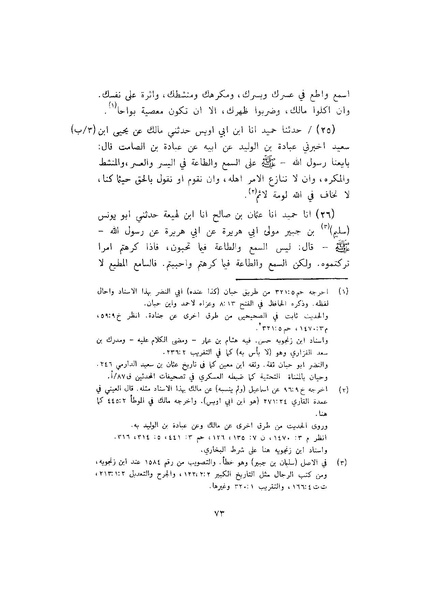 اسمع واطع في عسرك ويسرك، ومكرهك ومنشطك، واثرة على نفسك.
وان اكلوا مالك، وضربوا ظهرك، الا ان تكون معصية بواحا(١).
(٢٥) / حدثنا حميد انا ابن ابي اويس حدثني مالك عن يحيى ابن (٣/ب)
سعيد اخبرني عبادة بن الوليد عن ابيه عن عبادة بن الصامت قال:
بايعنا رسول الله – ﷺ على السمع والطاعة في اليسر والعسر، والمنشط
والمكره، وان لا ننازع الامر اهله، وان نقوم او نقول بالحق حيثما كنا،
لا نخاف في الله لومة لائم(٢).
(٢٦) انا حميد انا عثمان بن صالح انا ابن لهيعة حدثني ابو يونس
(سليم)(٣) بن جبير مولى ابي هريرة عن ابي هريرة عن رسول الله –
ﷺ – قال: ليس السمع والطاعة فيما تحبون، فاذا كرهتم امرا
تركتموه. ولكن السمع والطاعة فيما كرهتم واحببتم. فالسامع المطيع لا
(١) اخرجه حم ٥: ٣٢١ من طريق حبان (كذا عنده) ابي النضر بهذا الاسناد واحال
لفظه. وذكره الحافظ في الفتح ١٣: ٨ وعزاه لاحمد وابن حبان.
والحديث ثابت في الصحيحين من طرق اخرى عن جنادة. انظر خ ٩: ٥٩،
م ٣: ١٤٧٠، حم ٥: ٣٢١.
واسناد ابن زنجويه حسن. فيه هشام بن عمار – ومضى الكلام عليه – ومدرك بن
سعد الفزاري وهو (لا بأس به) كما في التقريب ٢: ٢٣٦.
والنضر ابو حبان ثقة. وثقه ابن معين كما في تاريخ عثمان بن سعيد الدارمي ٢٤٦.
وحيان بالمثناة التحتية كما ضبطه العسكري في تصحيفات المحدثين ق ٨٧/أ.
(٢) اخرجه خ ٩: ٩٦ عن اسماعيل (ولم ينسبه) عن مالك بهذا الاسناد مثله. قال العيني في
عمدة القاري ٢٤: ٢٧١ (هو ابن ابي اويس). واخرجه مالك في الموطأ ٢: ٤٤٥ كما
هنا.
وروي الحديث من طرق اخرى عن مالك وعن عبادة بن الوليد به.
انظر م ٣: ١٤٧٠، ن ٧: ١٣٥، ١٢٦، حم ٣: ٤٤١، ٥: ٣١٤، ٣١٦.
واسناد ابن زنجويه هنا على شرط البخاري.
(٣) في الاصل (سلمان بن جبير) وهو خطأ. والتصويب من رقم ١٥٨٤ عند ابن زنجويه،
ومن كتب الرجال مثل التاريخ الكبير ٢: ٢: ١٢٢، والجرح والتعديل ٢: ١: ٢١٣،
ت ت ٤: ١٦٦، والتقريب ١: ٣٢٠ وغيرها.
٧٣